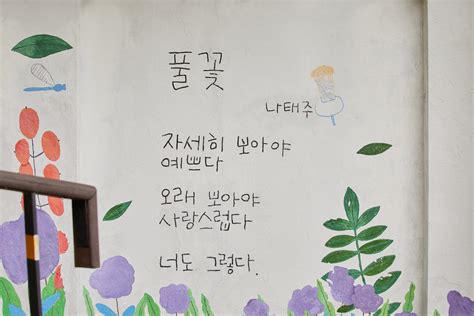 풀꽃
나태주
자세히 보아야
예쁘다
오래 보아야
사랑스럽다
너도 그렇다.